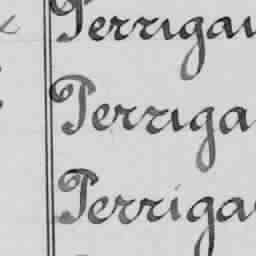 Perrigau
Perriga
Perriga